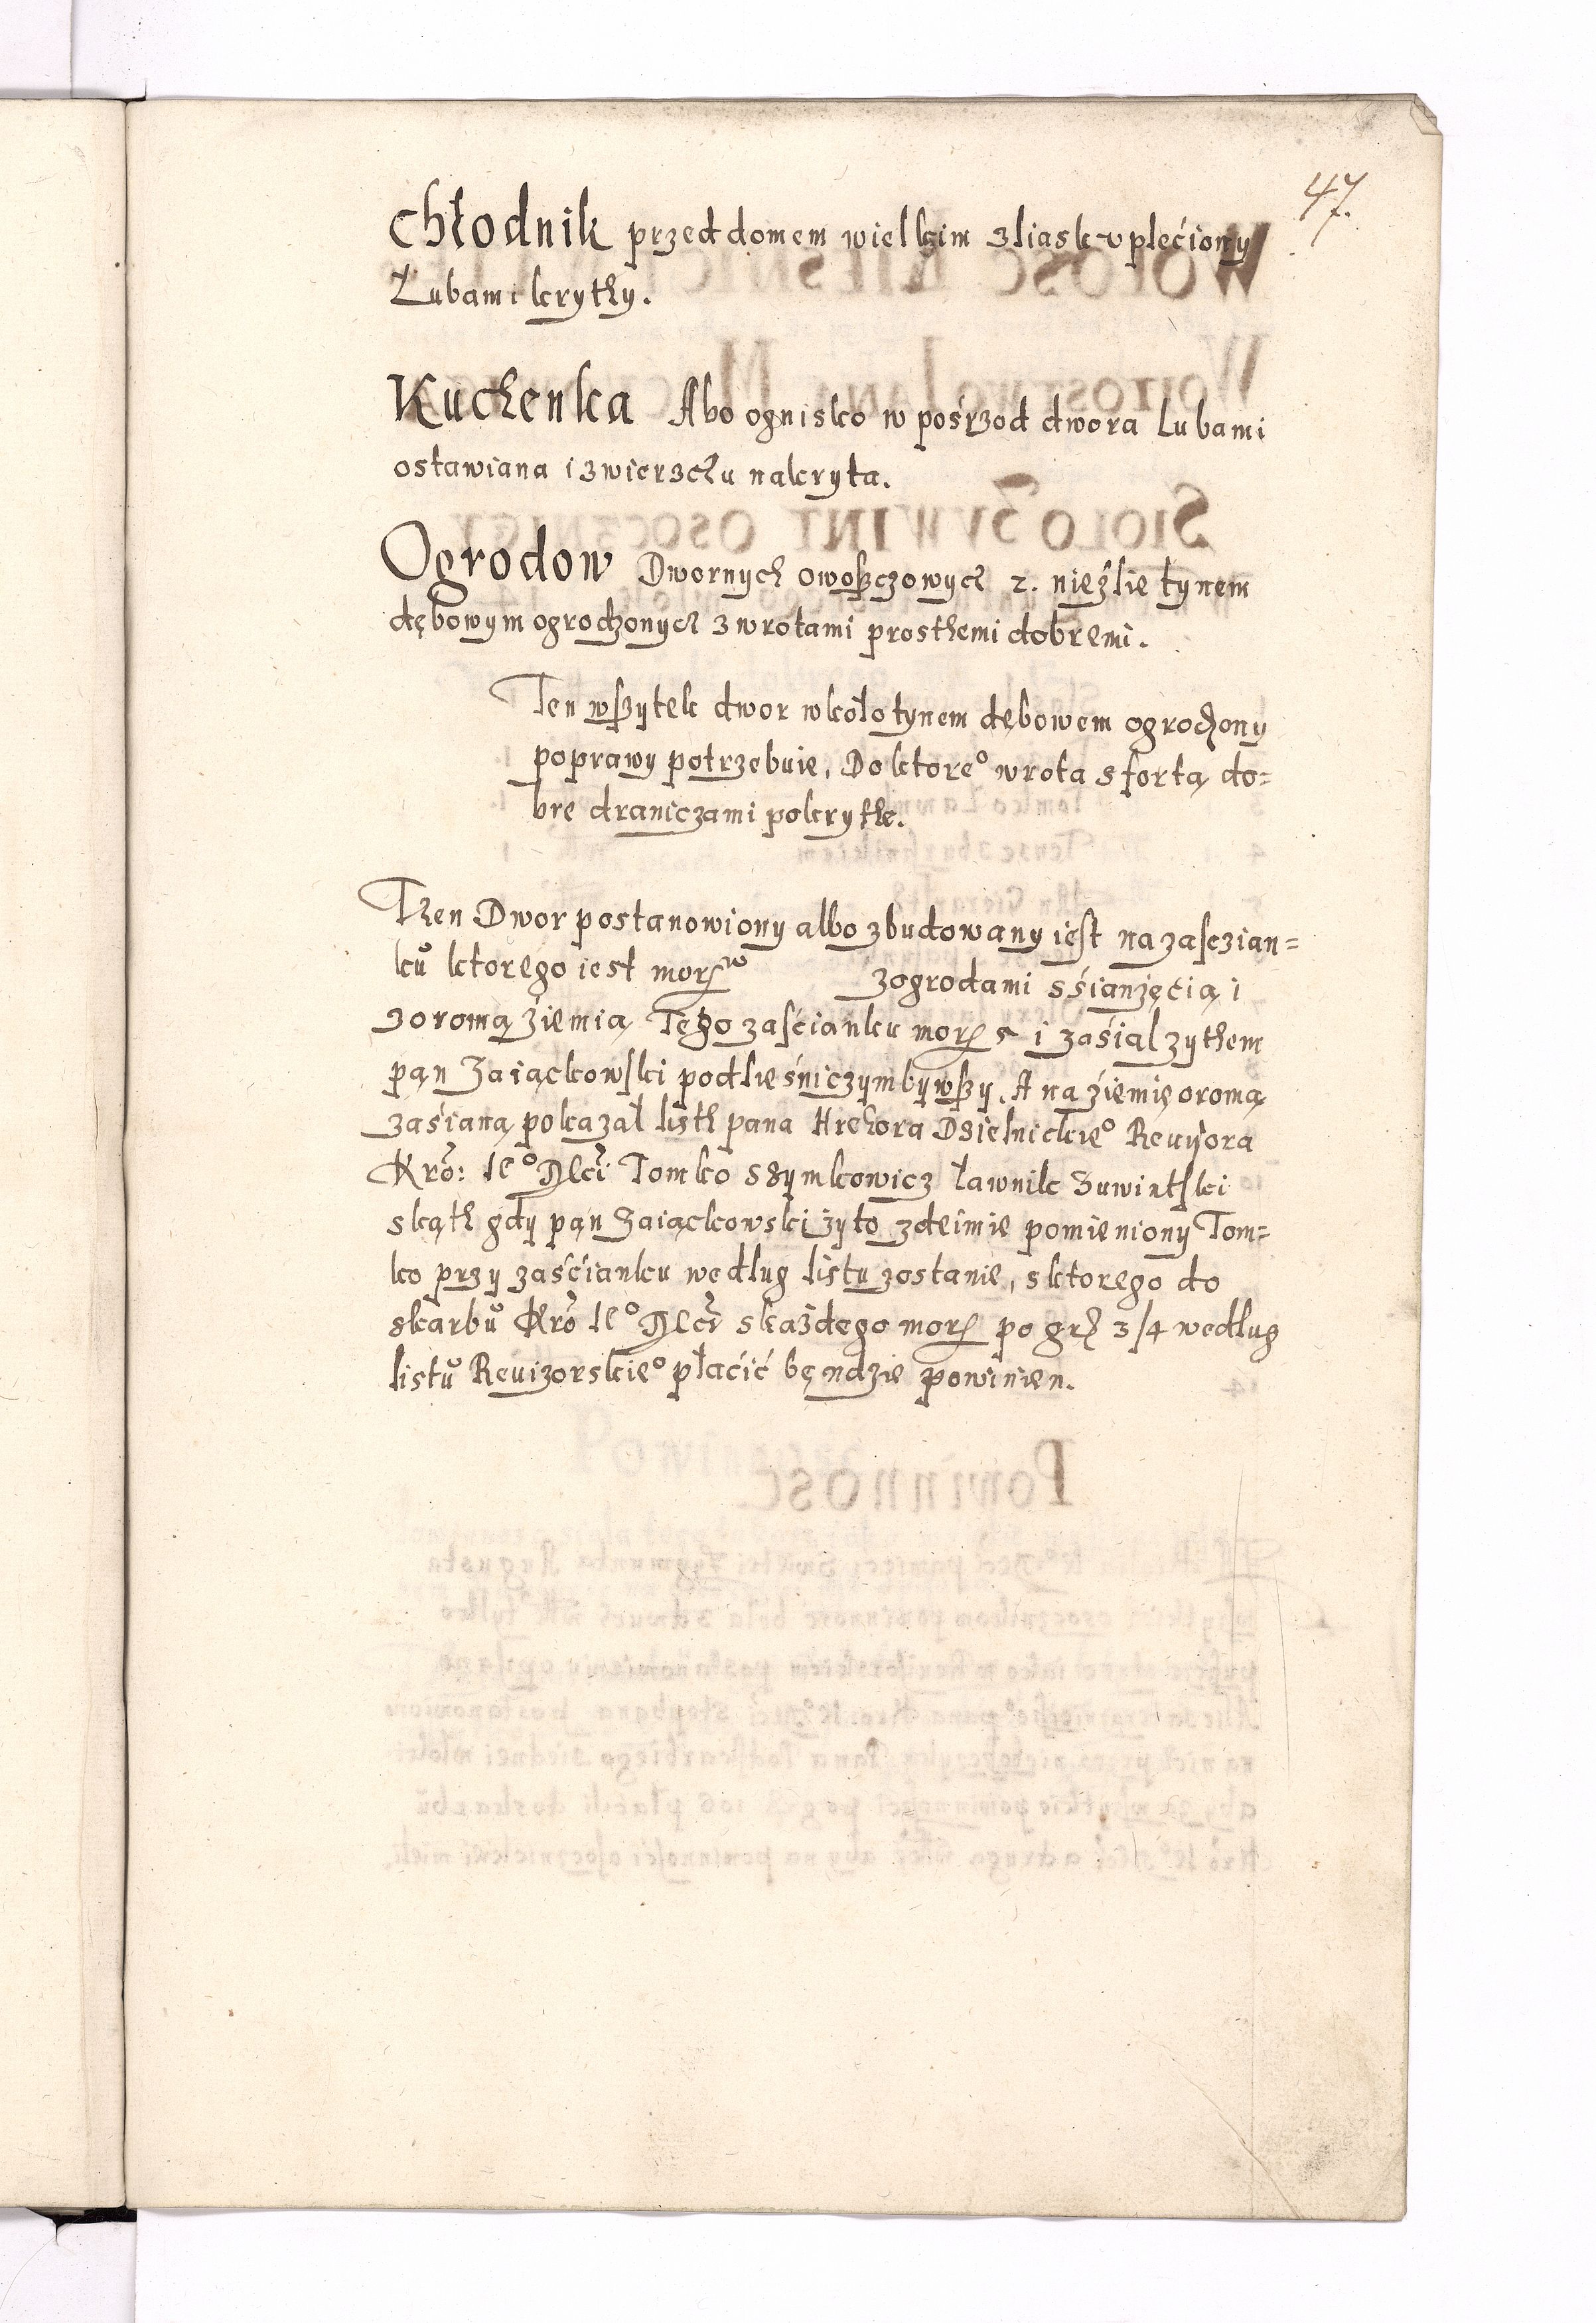 47.
Chłodnik przed domem wielkim zliask vplećiony
Łubami krythy.
Kuchenka Abo ognisko w pośrzod dwora Lubami
ostawiana i zwierzchu nakryta.
Ogrodow Dwornych owoszczowych 2. nieźlie tynem
dębowym ogrodzonych zwrotami prosthemi dobremi.
Ten wszytek dwor wkoło tynem dębowem ogrodzony
poprawy potrzebuie, Do ktore° wrota sfortą do=
bre draniczami pokrythe.
Then Dwor postanowiony albo zbudowany iest na zasczian=
kŭ ktorego iest morg zogrodami sśianżęcią i
zoromą źiemią Tego zaścianku morg 5 i zaśial zythem
pąn Zaiąckowski podlieśniczym bywszy. A na źiemię oromą
zaśianą pokazał listh pana Hrehora Dsielnickie° Reuijora
Kro: Ie° Tomko Szymkowicz ławnik Zuwintski
skąth gdy pąn Zaiąckowski żyto zdeimie pomieniony Tom=
ko przy zaśćianku według listu zostanie, sktorego do
skarbŭ Kro Ie° skażdego morg po gr 3/4 według
listŭ Reuizorskie° płaćić będzie powinien.